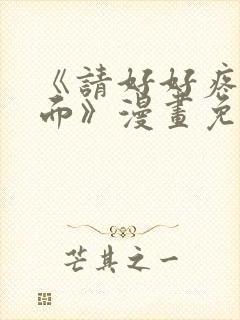 《請好好疼
而》漫畫免
芒其之一